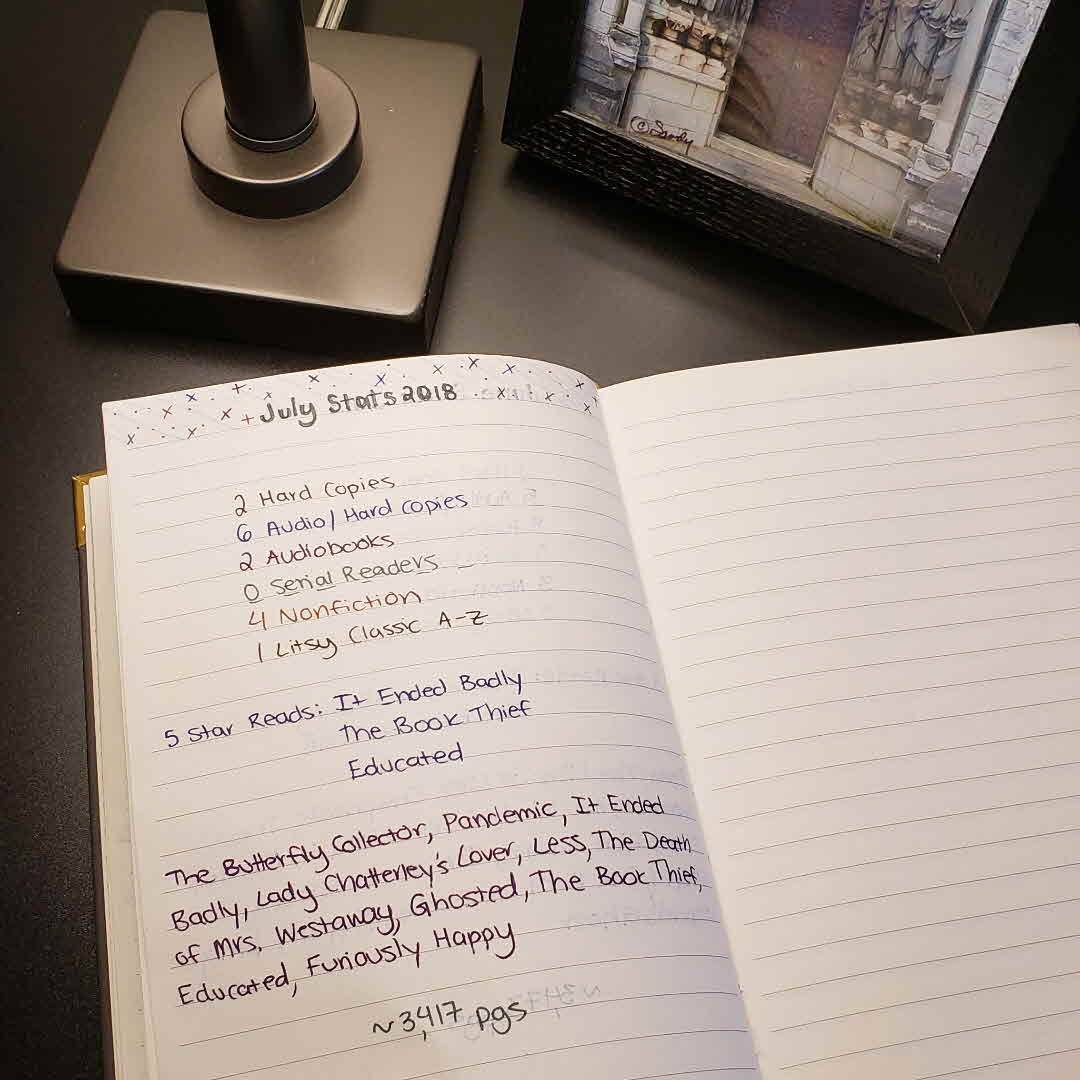 © Sandy
July Stats 2018
2 Hard Copies
6 Audio/Hard copies
2 Audiobooks
0 Serial Readers
4 Nonfiction
1 Litsy Classic A-Z
5 Star Reads: It Ended Badly
The Book Thief
Educated
The Butterfly Collector, Pandemic, It Ended
Badly, Lady Chatterley's Lover, Less, The Death
of Mrs. Westaway, Ghosted, The Book Thief,
Educated, Furiously Happy
~3,417 pgs